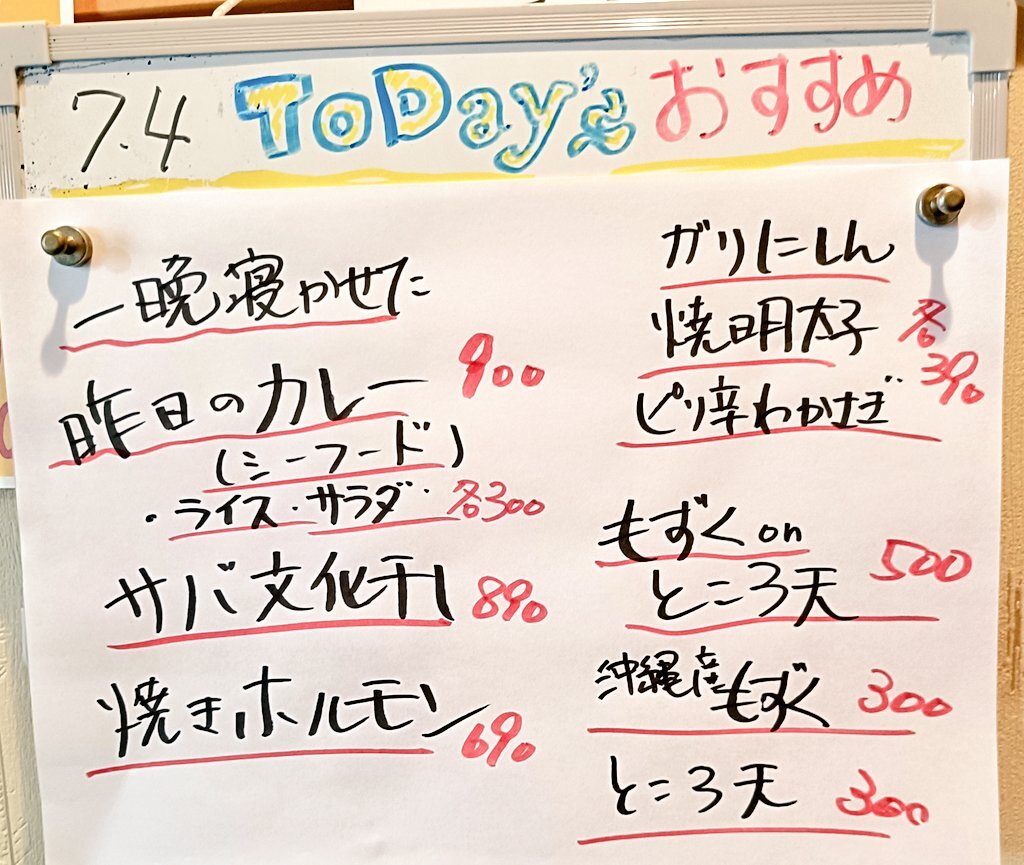 7.4 ToDay's おすすめ
一晩寝かせた
昨日のカレー 900
(シーフード)
・ライス・サラダ・各300
サバ文化干し 890
焼きホルモン 690
ガリにしん
焼明太子 各
390
ピリ辛わかさぎ
もずくon
ところ天 500
沖縄産もずく 300
ところ天 300